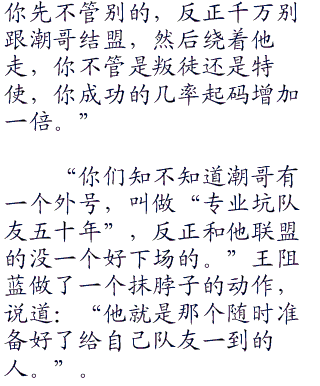 你先不管别的，反正千万别
跟潮哥结盟，然后绕着他
走，你不管是叛徒还是特
使，你成功的几率起码增加
一倍。”
“你们知不知道潮哥有
一个外号，叫做“专业坑队
友五十年”，反正和他联盟
的没一个好下场的。”王阻
蓝做了一个抹脖子的动作，
说道：“他就是那个随时准
备好了给自己队友一到的
人。”。